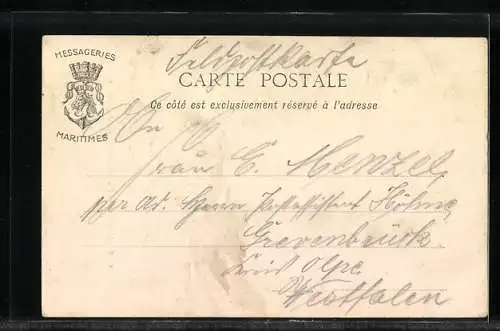 MESSAGERIES
MARITIMES
Feldpostkarte
CARTE POSTALE
Ce côté est exclusivement réservé à l'adresse
An
Frau C. Menzel
per Ad. Herrn Postassistent Höhne
Grevenbrück
Kreis Olpe
Westfalen